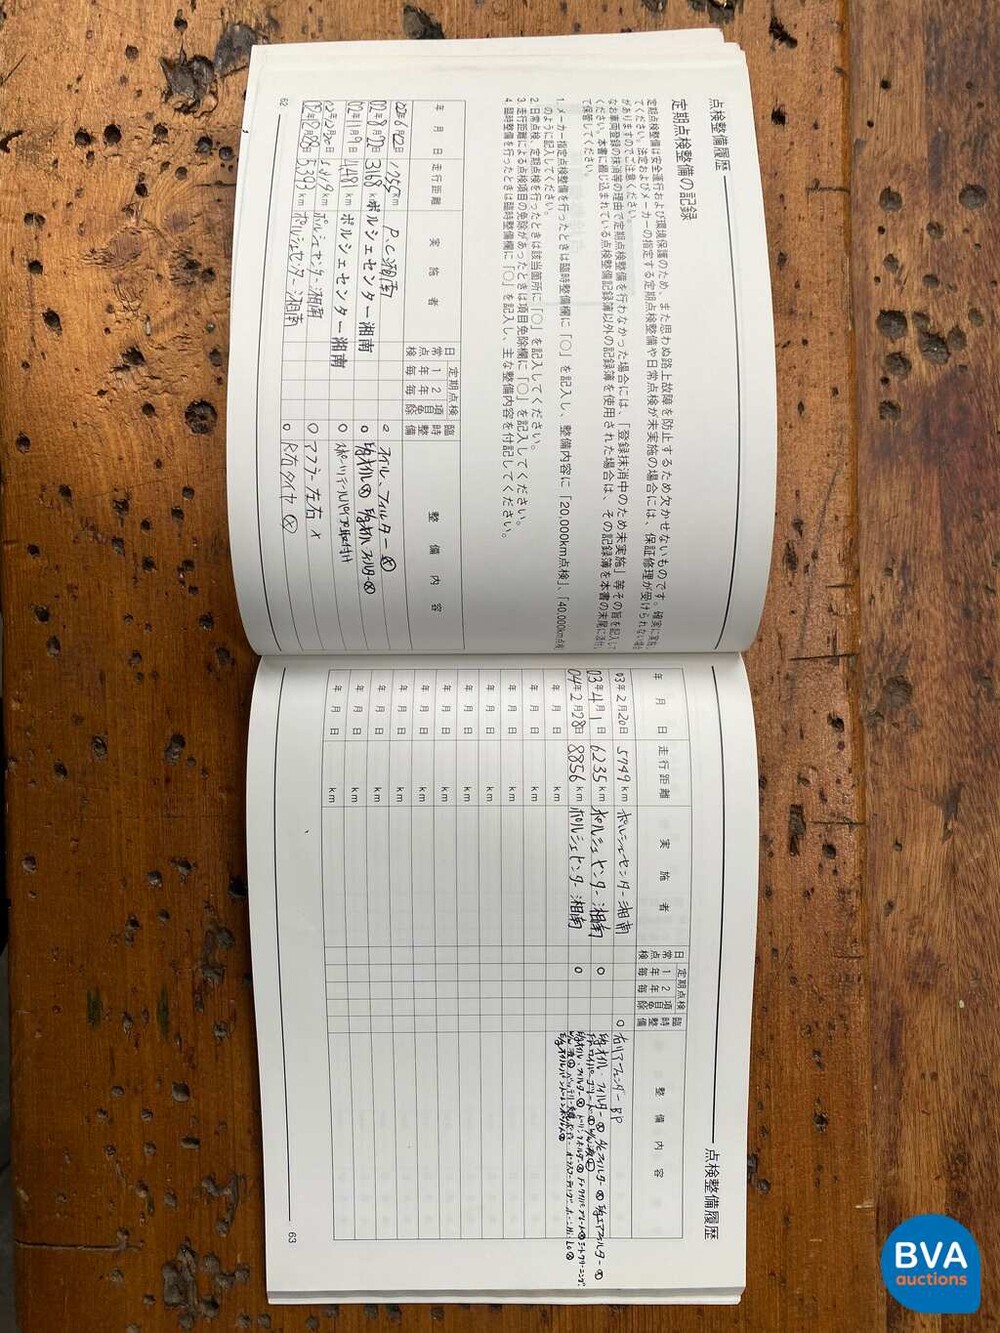 点検整備履歴
定期点検整備の記録
定期点検整備は安全運行および環境保護のため、また思わぬ路上故障を防止するため欠かせないものです。確実に実施し
てください。法定およびメーカーの指定する定期点検整備や日常点検が未実施の場合には、保証修理が受けられない場合
がありますのでご注意ください。
なお車両登録の抹消等の理由で定期点検整備を行わなかった場合には、「登録抹消中のため未実施」等その旨を記入して
ください。本書に綴じ込まれている点検整備記録簿以外の記録簿を使用された場合は、その記録簿を本書の末尾に添付し
て保管してください。
1. メーカー指定点検整備を行ったときは臨時整備欄に「○」を記入し、整備内容に「20,000km点検」、「40,000km点検
のように記入してください。
2. 日常点検、定期点検を行ったときは該当箇所に「○」を記入してください。
3. 走行距離による点検項目の免除があったときは項目免除欄に「○」を記入してください。
4. 臨時整備を行ったときは臨時整備欄に「○」を記入し、主な整備内容を付記してください。
年 月 日 走行距離 実施者 日常点検 定期点検 1年毎 2年毎 項目免除 臨時整備 整備内容
年6月12日 1255km P.C湘南 ○ オイル、フィルター
02年8月20日 3168km ポルシェセンター湘南 ○
02年11月9日 4481km ポルシェセンター湘南 ○
年12月20日 km ポルシェセンター湘南 ○ マフラー左右 ×
年12月28日 5393km ポルシェセンター湘南 ○ R右タイヤ
62
点検整備履歴
年 月 日 走行距離 実施者 日常点検 定期点検 1年毎 2年毎 項目免除 臨時整備 整備内容
03年2月20日 5749km ポルシェセンター湘南 ○ 右リアフェンダー BP
03年4月1日 6235km ポルシェセンター湘南 ○
04年2月28日 8856km ポルシェセンター湘南 ○
年 月 日 km
年 月 日 km
年 月 日 km
年 月 日 km
年 月 日 km
年 月 日 km
年 月 日 km
年 月 日 km
年 月 日 km
年 月 日 km
年 月 日 km
63
BVA
auctions